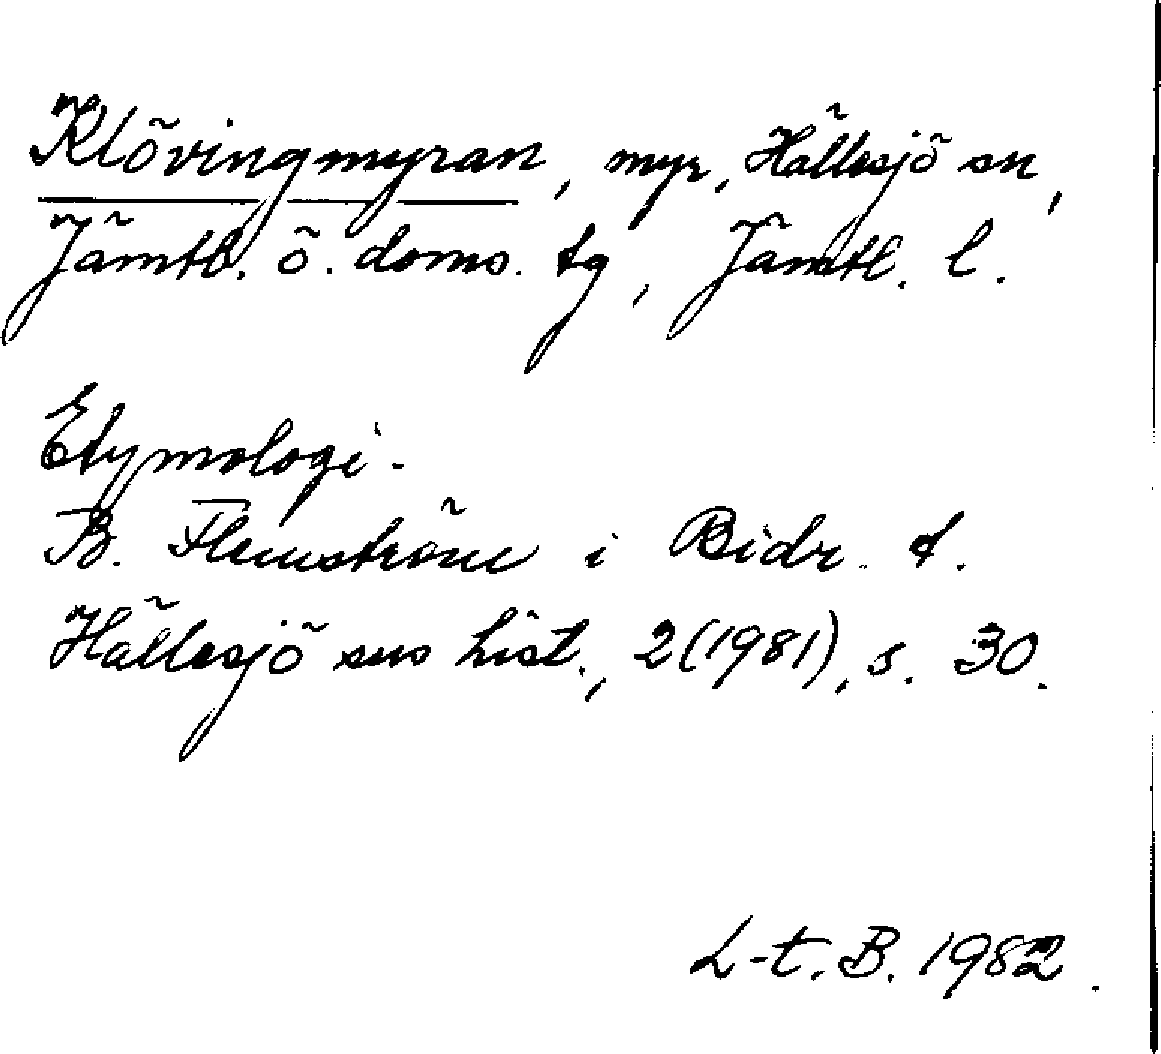 Klövingmyran, myr, Hällesjö sn,
Jämtl. ö. doms. tg, Jämtl. l.
Etymologi.
B. Flemström i Bidr. t.
Hällesjö sns hist., 2(1981), s. 30.
L-t. B. 1982.